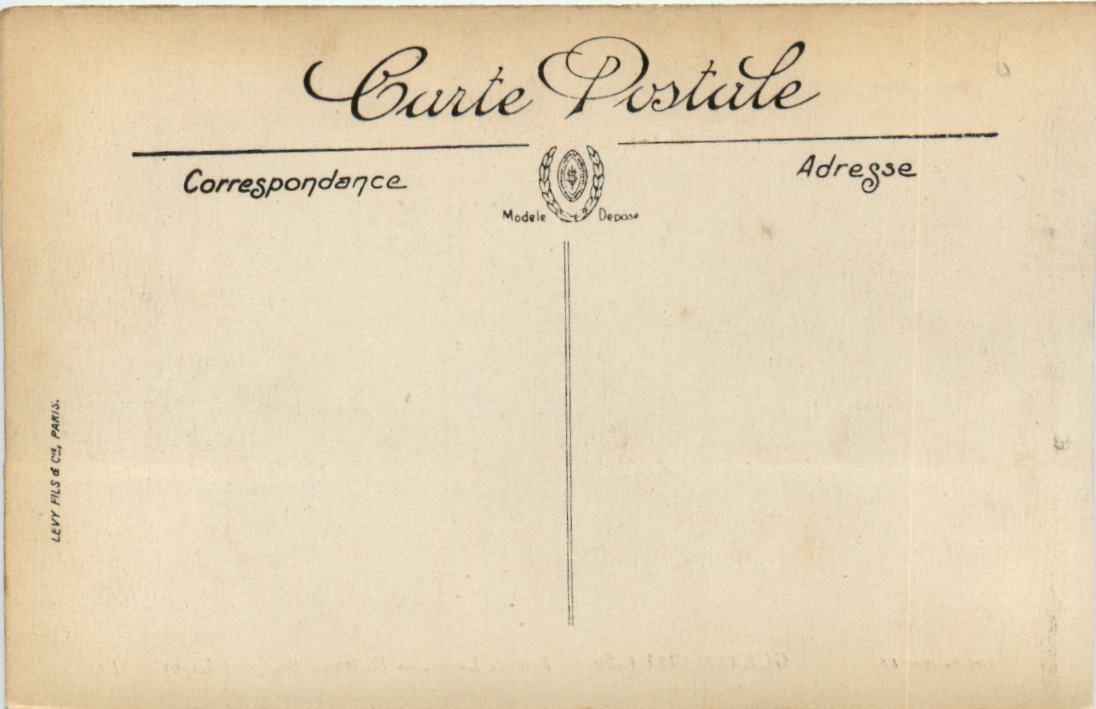 Carte Postale
Correspondance
Adresse
$
Modele Depose
LEVY FILS & Cie, PARIS.